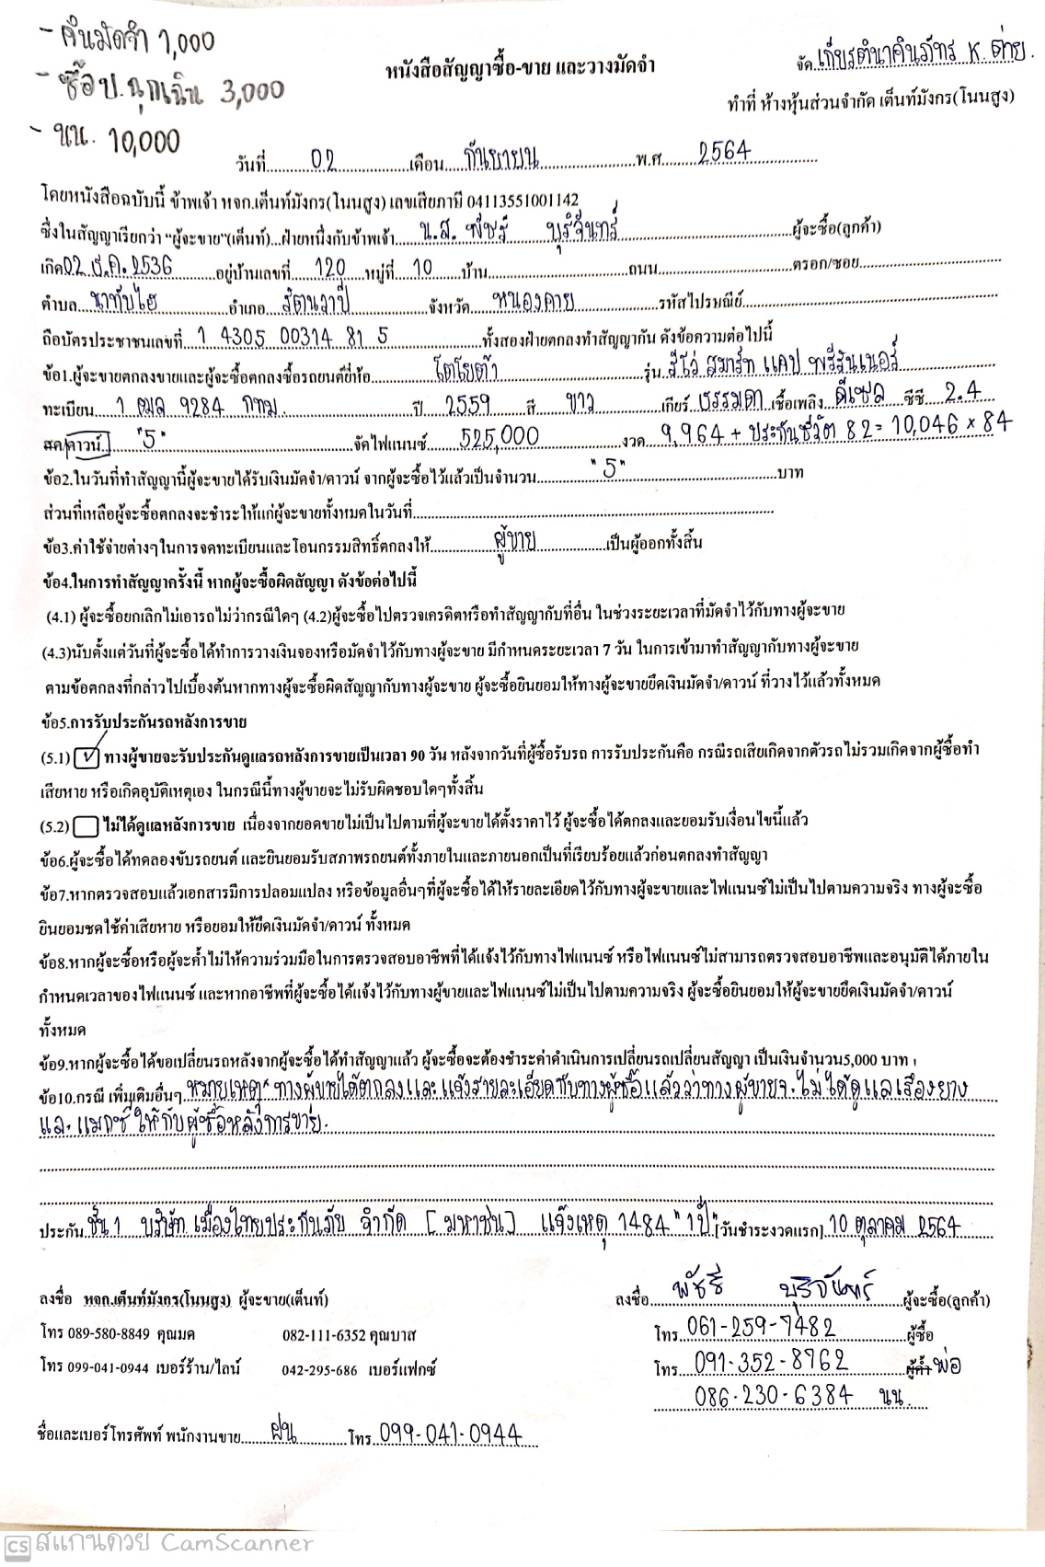 - คืนมัดจำ 1,000
- ซื้อ ป.ฉุกเฉิน 3,000
- นน. 10,000
จัด เกียรตินาคินภัทร K.ต่าย.
หนังสือสัญญาซื้อ-ขาย และวางมัดจำ
ทำที่ ห้างหุ้นส่วนจำกัด เต็นท์มังกร(โนนสูง)
วันที่ 02 เดือน กันยายน พ.ศ 2564
โดยหนังสือฉบับนี้ ข้าพเจ้า หจก.เต็นท์มังกร(โนนสูง) เลขเสียภาษี 04113551001142
ซึ่งในสัญญาเรียกว่า "ผู้จะขาย"(เต็นท์)...ฝ่ายหนึ่งกับข้าพเจ้า น.ส. พัชรี บุรีจันทร์ ผู้จะซื้อ(ลูกค้า)
เกิด 02 ธ.ค. 2536 อยู่บ้านเลขที่ 120 หมู่ที่ 10 บ้าน ถนน ตรอก/ซอย
ตำบล นาทับไฮ อำเภอ รัตนวาปี จังหวัด หนองคาย รหัสไปรษณีย์
ถือบัตรประชาชนเลขที่ 1 4305 00314 81 5 ทั้งสองฝ่ายตกลงทำสัญญากัน ดังข้อความต่อไปนี้
ข้อ1.ผู้จะขายตกลงขายและผู้จะซื้อตกลงซื้อรถยนต์ยี่ห้อ โตโยต้า รุ่น รีโว่ สมาร์ท แคป พรีรันเนอร์
ทะเบียน 1 ฒล 9284 กทม. ปี 2559 สี ขาว เกียร์ ธรรมดา เชื้อเพลิง ดีเซล ซีซี 2.4
สด/ดาวน์ "5" จัดไฟแนนซ์ 525,000 งวด 9,964 + ประกันชีวิต 82 = 10,046 x 84
ข้อ2.ในวันที่ทำสัญญานี้ผู้จะขายได้รับเงินมัดจำ/ดาวน์ จากผู้จะซื้อไว้แล้วเป็นจำนวน "5" บาท
ส่วนที่เหลือผู้จะซื้อตกลงจะชำระให้แก่ผู้จะขายทั้งหมดในวันที่
ข้อ3.ค่าใช้จ่ายต่างๆในการจดทะเบียนและโอนกรรมสิทธิ์ตกลงให้ ผู้ขาย เป็นผู้ออกทั้งสิ้น
ข้อ4.ในการทำสัญญาครั้งนี้ หากผู้จะซื้อผิดสัญญา ดังข้อต่อไปนี้
(4.1) ผู้จะซื้อยกเลิกไม่เอารถไม่ว่ากรณีใดๆ (4.2)ผู้จะซื้อไปตรวจเครดิตหรือทำสัญญากับที่อื่น ในช่วงระยะเวลาที่มัดจำไว้กับทางผู้จะขาย
(4.3)นับตั้งแต่วันที่ผู้จะซื้อได้ทำการวางเงินจองหรือมัดจำไว้กับทางผู้จะขาย มีกำหนดระยะเวลา 7 วัน ในการเข้ามาทำสัญญากับทางผู้จะขาย
ตามข้อตกลงที่กล่าวไปเบื้องต้นหากทางผู้จะซื้อผิดสัญญากับทางผู้จะขาย ผู้จะซื้อยินยอมให้ทางผู้จะขายยึดเงินมัดจำ/ดาวน์ ที่วางไว้แล้วทั้งหมด
ข้อ5.การรับประกันรถหลังการขาย
(5.1) ✓ ทางผู้ขายจะรับประกันดูแลรถหลังการขายเป็นเวลา 90 วัน หลังจากวันที่ผู้ซื้อรับรถ การรับประกันคือ กรณีรถเสียเกิดจากตัวรถไม่รวมเกิดจากผู้ซื้อทำ
เสียหาย หรือเกิดอุบัติเหตุเอง ในกรณีนี้ทางผู้ขายจะไม่รับผิดชอบใดๆทั้งสิ้น
(5.2) ไม่ได้ดูแลหลังการขาย เนื่องจากยอดขายไม่เป็นไปตามที่ผู้จะขายได้ตั้งราคาไว้ ผู้จะซื้อได้ตกลงและยอมรับเงื่อนไขนี้แล้ว
ข้อ6.ผู้จะซื้อได้ทดลองขับรถยนต์ และยินยอมรับสภาพรถยนต์ทั้งภายในและภายนอกเป็นที่เรียบร้อยแล้วก่อนตกลงทำสัญญา
ข้อ7.หากตรวจสอบแล้วเอกสารมีการปลอมแปลง หรือข้อมูลอื่นๆที่ผู้จะซื้อได้ให้รายละเอียดไว้กับทางผู้จะขายและไฟแนนซ์ไม่เป็นไปตามความจริง ทางผู้จะซื้อ
ยินยอมชดใช้ค่าเสียหาย หรือยอมให้ยึดเงินมัดจำ/ดาวน์ ทั้งหมด
ข้อ8.หากผู้จะซื้อหรือผู้จะค้ำไม่ให้ความร่วมมือในการตรวจสอบอาชีพที่ได้แจ้งไว้กับทางไฟแนนซ์ หรือไฟแนนซ์ไม่สามารถตรวจสอบอาชีพและอนุมัติได้ภายใน
กำหนดเวลาของไฟแนนซ์ และหากอาชีพที่ผู้จะซื้อได้แจ้งไว้กับทางผู้ขายและไฟแนนซ์ไม่เป็นไปตามความจริง ผู้จะซื้อยินยอมให้ผู้จะขายยึดเงินมัดจำ/ดาวน์
ทั้งหมด
ข้อ9.หากผู้จะซื้อได้ขอเปลี่ยนรถหลังจากผู้จะซื้อได้ทำสัญญาแล้ว ผู้จะซื้อจะต้องชำระค่าดำเนินการเปลี่ยนรถเปลี่ยนสัญญา เป็นเงินจำนวน5,000 บาท
ข้อ10.กรณี เพิ่มเติมอื่นๆ หมายเหตุ* ทางผู้ขายได้ตกลงและแจ้งรายละเอียดกับทางผู้ซื้อแล้วว่าทางผู้ขายจะไม่ได้ดูแลเรื่องยาง
และแมกซ์ ให้กับผู้ซื้อหลังการขาย.
ประกัน ชั้น 1 บริษัท เมืองไทยประกันภัย จำกัด [มหาชน] แจ้งเหตุ 1484 "1ปี" [วันชำระงวดแรก] 10 ตุลาคม 2564
ลงชื่อ หจก.เต็นท์มังกร(โนนสูง) ผู้จะขาย(เต็นท์) ลงชื่อ พัชรี บุรีจันทร์ ผู้จะซื้อ(ลูกค้า)
โทร 089-580-8849 คุณมด 082-111-6352 คุณบาส โทร 061-259-7482 ผู้ซื้อ
โทร 099-041-0944 เบอร์ร้าน/ไลน์ 042-295-686 เบอร์แฟกซ์ โทร 091-352-8962 ผู้ค้ำ พ่อ
086-230-6384 นน.
ชื่อและเบอร์โทรศัพท์ พนักงานขาย ฝน โทร 099-041-0944
CS สแกนด้วย CamScanner